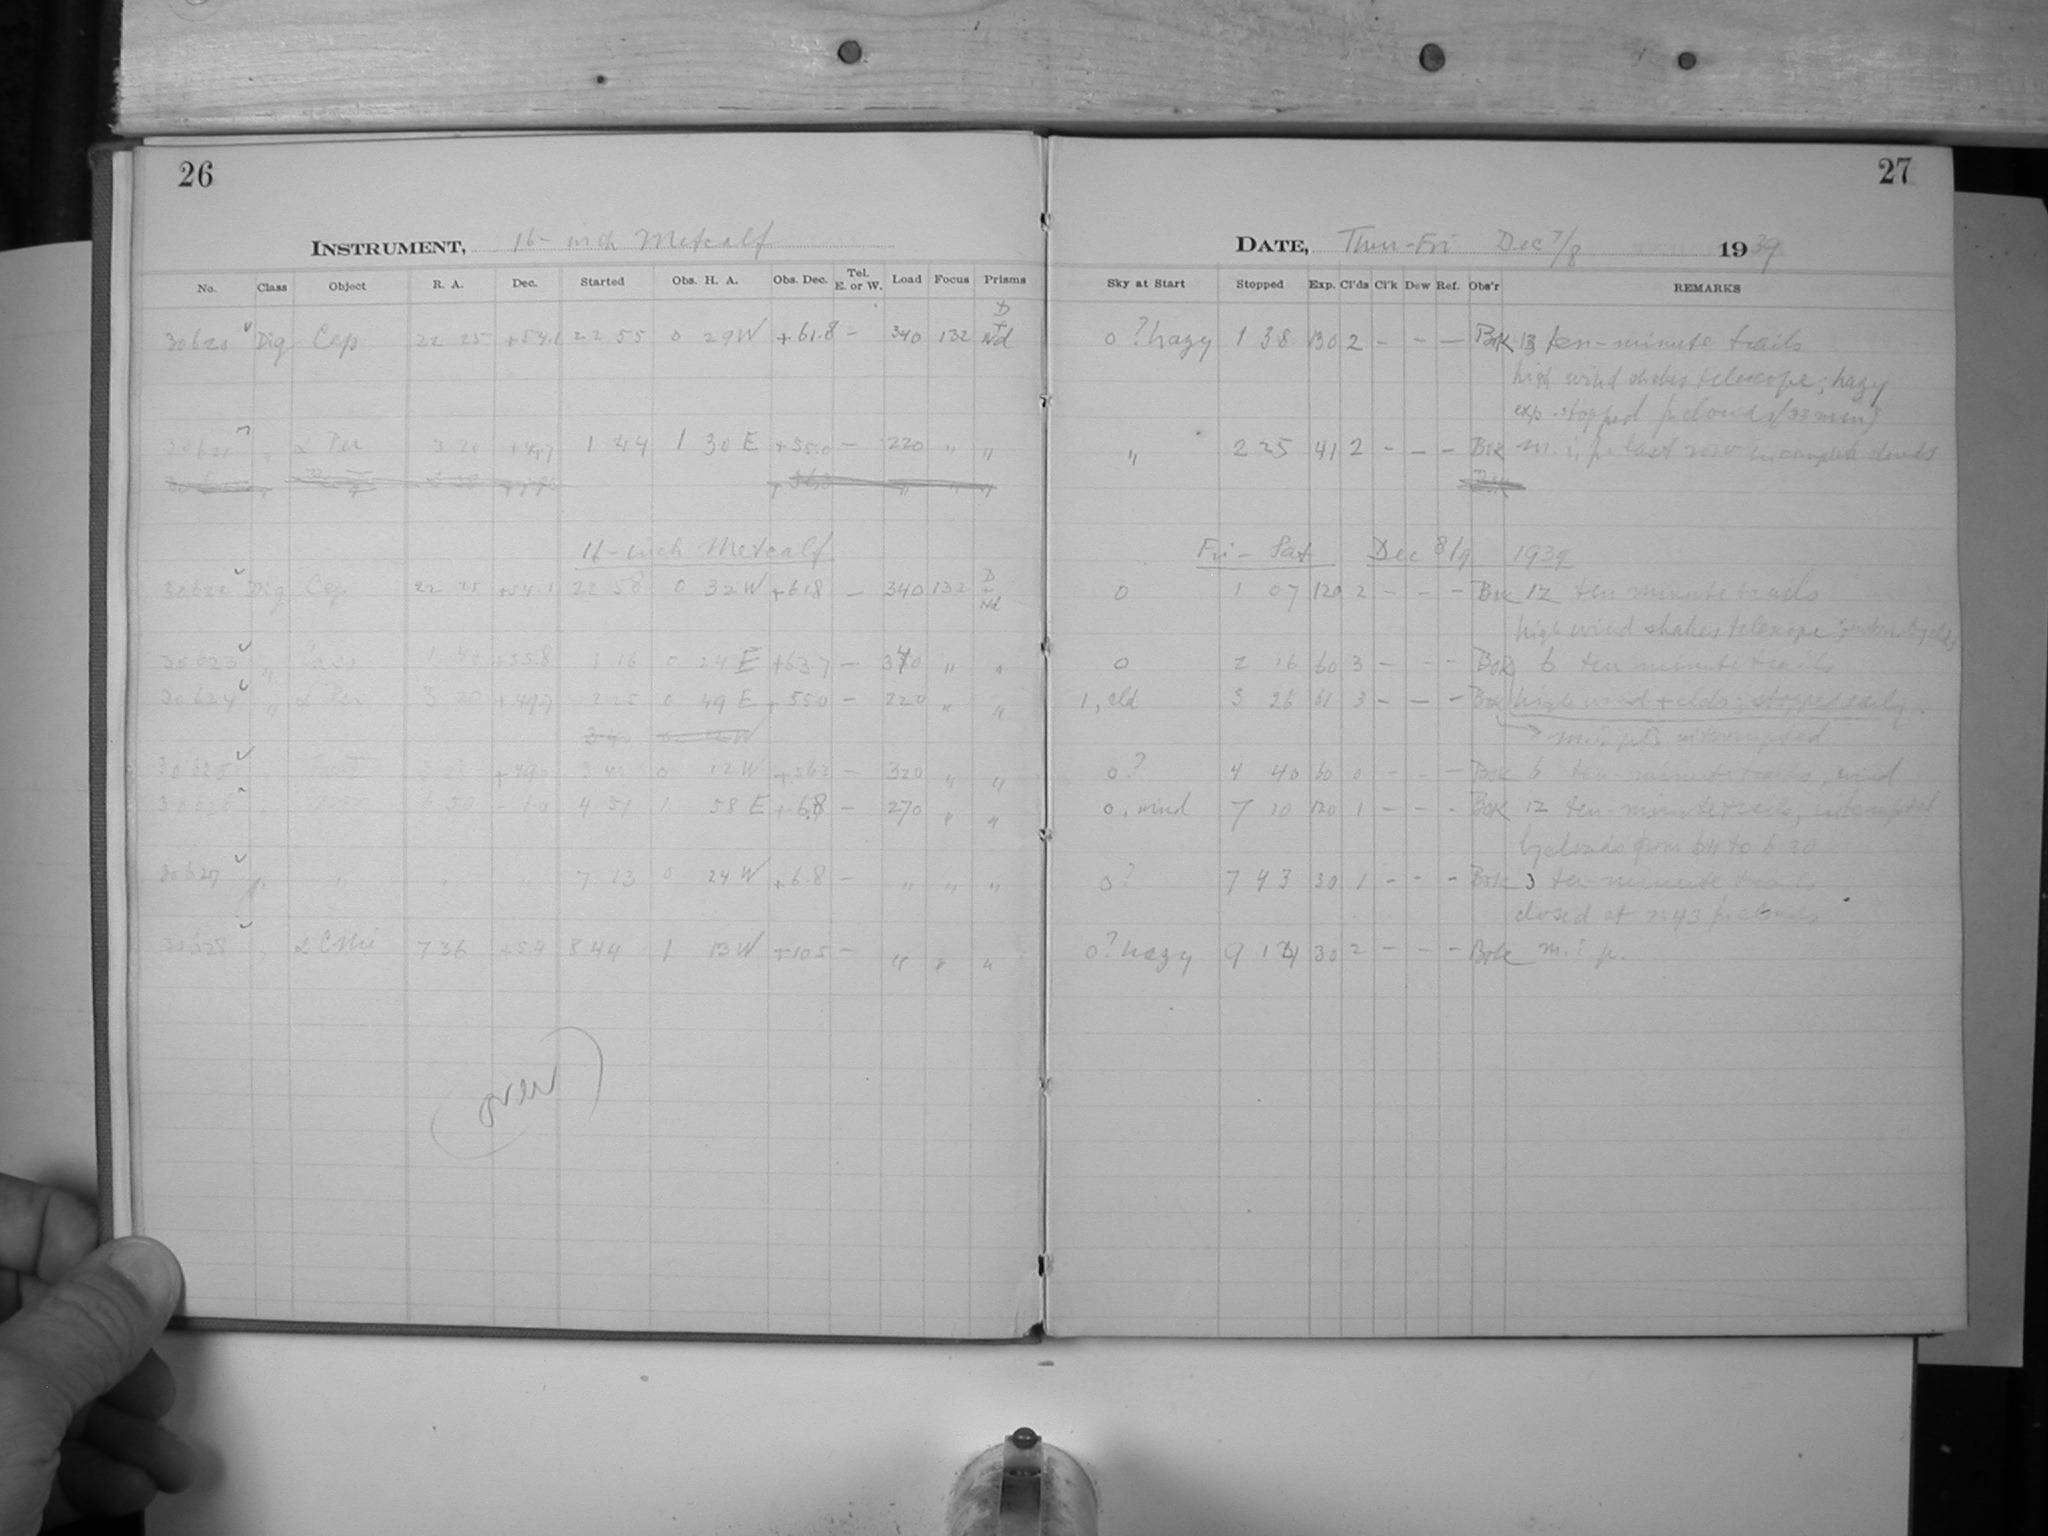 26
INSTRUMENT, 16-inch Metcalf
No. Class Object R. A. Dec. Started Obs. H. A. Obs. Dec. Tel. E. or W. Load Focus Prisms
30620 Dig Cep 22 25 +54.1 22 55 0 29 W +61.8 - 340 132 D + Nd
30621 " α Per 3 20 +49.7 1 44 1 30 E +55.0 - 220 " "
16-inch Metcalf
30622 Dig Cep 22 25 +54.1 22 58 0 32 W +61.8 - 340 132 D + Nd
30623 " Cass +55.8 1 16 0 24 E +63.7 - 340 " "
30624 " α Per 3 20 +49.7 2 25 0 49 E +55.0 - 220 " "
30625 0 12 W - 320 " "
30626 4 51 1 58 E +6.8 - 270 " "
30627 " " " " 7 13 0 24 W +6.8 - " " "
30628 " α CMi 7 36 +5.4 8 44 1 13 W +10.5 - " " "
(over)
27
DATE, Thu-Fri Dec 7/8 1939
Sky at Start Stopped Exp. Cl'ds Cl'k Dew Ref. Obs'r REMARKS
0? hazy 1 38 130 2 - - - Bok 13 ten-minute trails
high wind shakes telescope; hazy
exp. stopped clouds
" 2 25 41 2 - - - Bok m. i. p. last row incomplete clouds
Fri - Sat Dec 8/9 1939
0 1 07 120 2 - - - Bok 12 ten minute trails
high wind shakes telescope
0 2 16 60 3 - - - Bok 6 ten minute trails
1, cld 3 26 61 3 - - - Bok high wind + clds; stopped early.
→ m.i.p. interrupted
0? 4 40 60 0 - - - Bok 6 ten-minute trails, wind
0, wind 7 10 120 1 - - - Bok 12 ten-minute trails, interrupted
by clouds from 6 11 to 6 20
0? 7 43 30 1 - - - Bok 3 ten-minute trails
closed at 7:43 clouds
0? hazy 9 14 30 2 - - - Bok m. i. p.